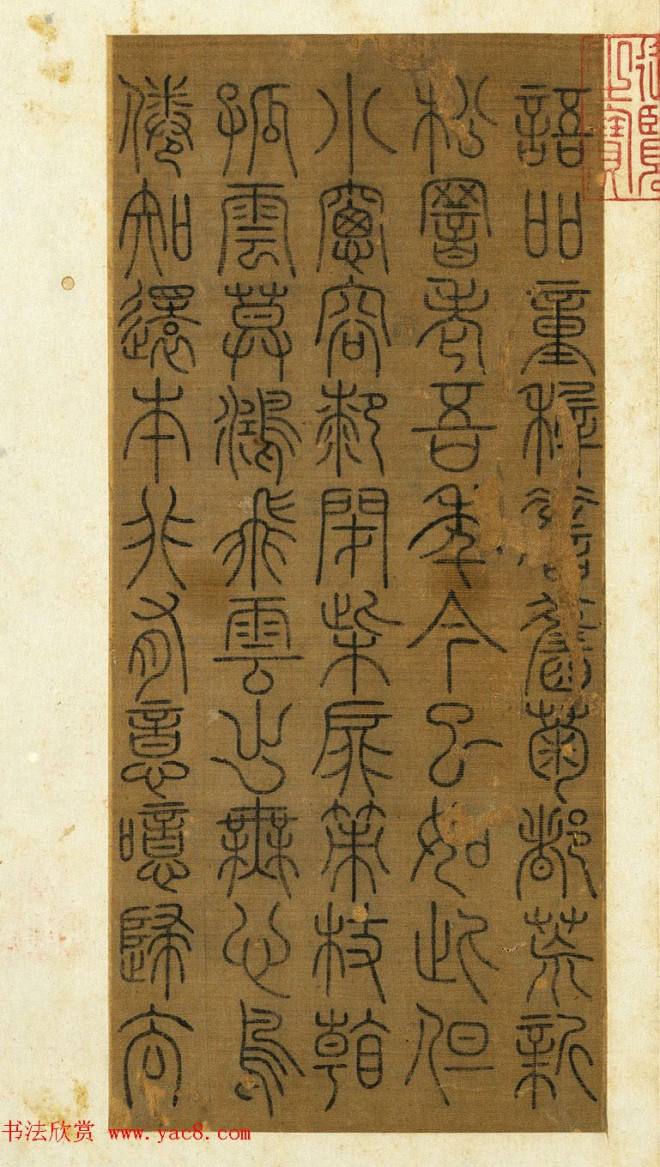 語吅童稚嗟舊菊都荒新
松暗老吾年今已如此但
小窗容膝閉柴扉策杖看
孤雲暮鴻飛雲出無心鳥
倦知還本非有意噫歸去
覽
寶
书法欣赏 www.yac8.com